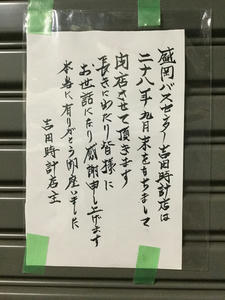 盛岡バスセンター吉田時計店は
二十八年九月末をもちまして
閉店させて頂きます
長きにわたり皆様に
お世話になり感謝申し上げます
本当に有りがとう御座いました
吉田時計店主